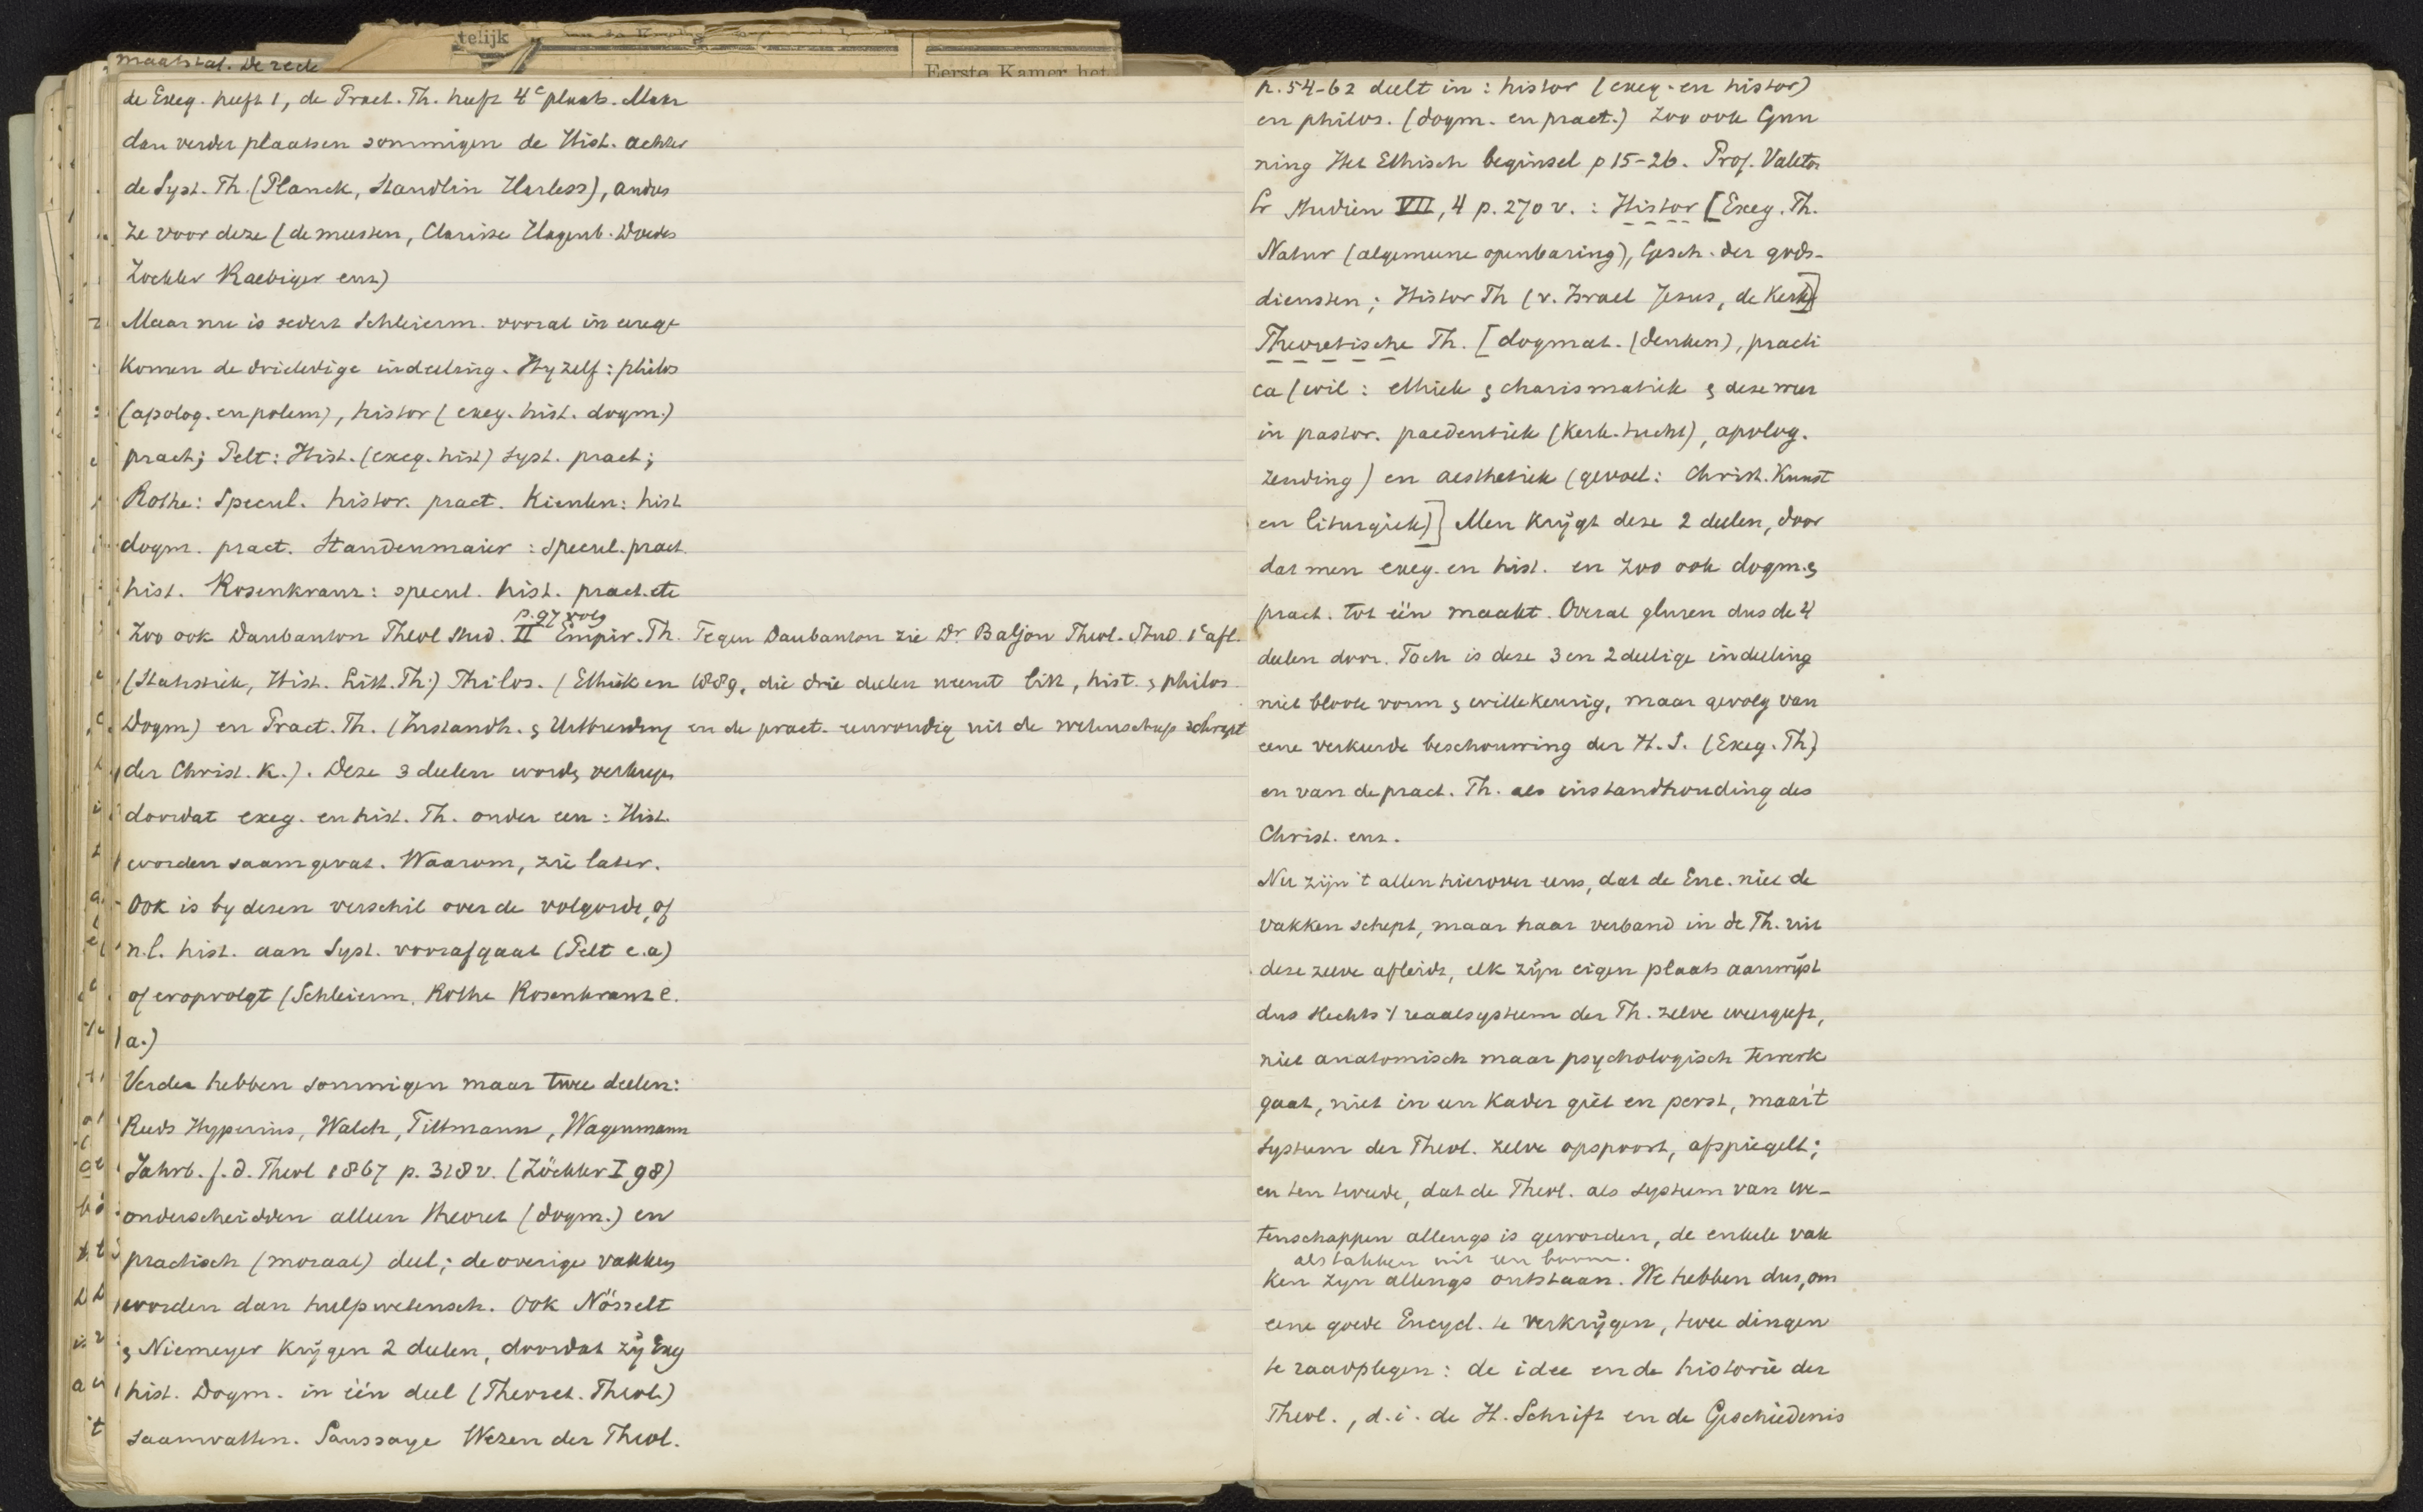 telijk
Eerste Kamer het
maatstaf. De rede
de Exeg. heeft 1, de Pract. Th. heeft 4e plaats. Maar
dan verder plaatsen sommigen de Hist. achter
de Syst. Th. (Planck, Staudlin Harless), andes
ze voor deze (de meesten, Clarisse Hagenb. Doedes
Zockler Raebiger enz)
Maar nu is sedert Schleierm. vooral in zwang ge
komen de drieledige indeeling. Hy zelf: philos
(apolog. en polem), histor (exeg. hist. dogm.)
pract; Pelt: Hist. (exeg. hist) syst. pract;
Rothe: Specul. histor. pract. Kienlen: hist
dogm. pract. Staudenmaier: specul. pract.
hist. Rosenkranz: specul. hist. pract. etc
p. 97 volg
Zoo ook Daubanton Theol Stud. II Empir. Th. Tegen Daubanton zie Dr. Baljon Theol. Stud. 1e afl.
(Statistiek, Hist. Litt. Th.) Philos. (Ethiek en 1889, die drie deelen neemt litt, hist. & philos
Dogm) en Pract. Th. (Instandh. & Uitbreiding en de pract. eenvoudig uit de wetenschap schrapt
der Christ. K.). Deze 3 deelen word& verkregen
doordat exeg. en hist. Th. onder een: Hist.
worden saamgevat. Waarom, zie later.
Ook is by dezen verschil over de volgorde, of
n.l. hist. aan Syst. voorafgaat (Pelt e.a)
of eropvolgt (Schleierm. Rothe Rosenkranz e.
a.)
Verder hebben sommigen maar twee deelen:
Reeds Hyperius, Walch, Tittmann, Wagenmann
Jahrb. f. d. Theol 1867 p. 318 v. (Zöckler I, 98)
onderscheidden alleen theoret (dogm.) en
practisch (moraal) deel; de overige vakken
worden dan hulpwetensch. Ook Nösselt
& Niemeyer krijgen 2 deelen, doordat zij Exeg
hist. Dogm. in één deel (Theoret. Theol.)
saamvatten. Saussaye Wezen der Theol.
p. 54-62 deelt in: histor (exeg. en histor)
en philos. (dogm. en pract.) Zoo ook Gun
ning Het Ethisch beginsel p 15-26. Prof. Valeton
Studien VII, 4 p. 270 v.: Histor [Exeg. Th.
Natuur (algemeene openbaring), Gesch. der gods-
diensten; Histor Th (v. Israel Jezus, de Kerk)]
Theoretische Th. [dogmat. (denken), practi
ca (wil: ethiek & charismatiek & deze weer
in pastor. paedeutiek (kerk. tucht), apolog.
zending) en aesthetiek (gevoel: Christ. Kunst
en liturgiek)] Men krijgt deze 2 deelen, door
dat men exeg. en hist. en zoo ook dogm. &
pract. tot één maakt. Overal gluren dus de 4
deelen door. Toch is deze 3 en 2 deelige indeeling
niet bloote vorm & willekeurig, maar gevolg van
eene verkeerde beschouwing der H.S. (Exeg. Th)
en van de pract. Th. als instandhouding des
Christ. enz.
Nu zijn 't allen hierover eens, dat de Enc. niet de
vakken schept, maar haar verband in de Th. uit
deze zelve afleidt, elk zijn eigen plaats aanwijst
dus slechts 't reaalsysteem der Th. zelve weergeeft,
niet anatomisch maar psychologisch te werk
gaat, niet in een kader giet en perst, maar 't
systeem der Theol. zelve opspoort, afspiegelt;
en ten tweede, dat de Theol. als systeem van we-
tenschappen allengs is geworden, de enkele vak
als takken uit een boom.
ken zyn allengs ontstaan. We hebben dus, om
eene goede Encycl. te verkrijgen, twee dingen
te raadplegen: de idee en de historie der
Theol., d.i. de H. Schrift en de Geschiedenis